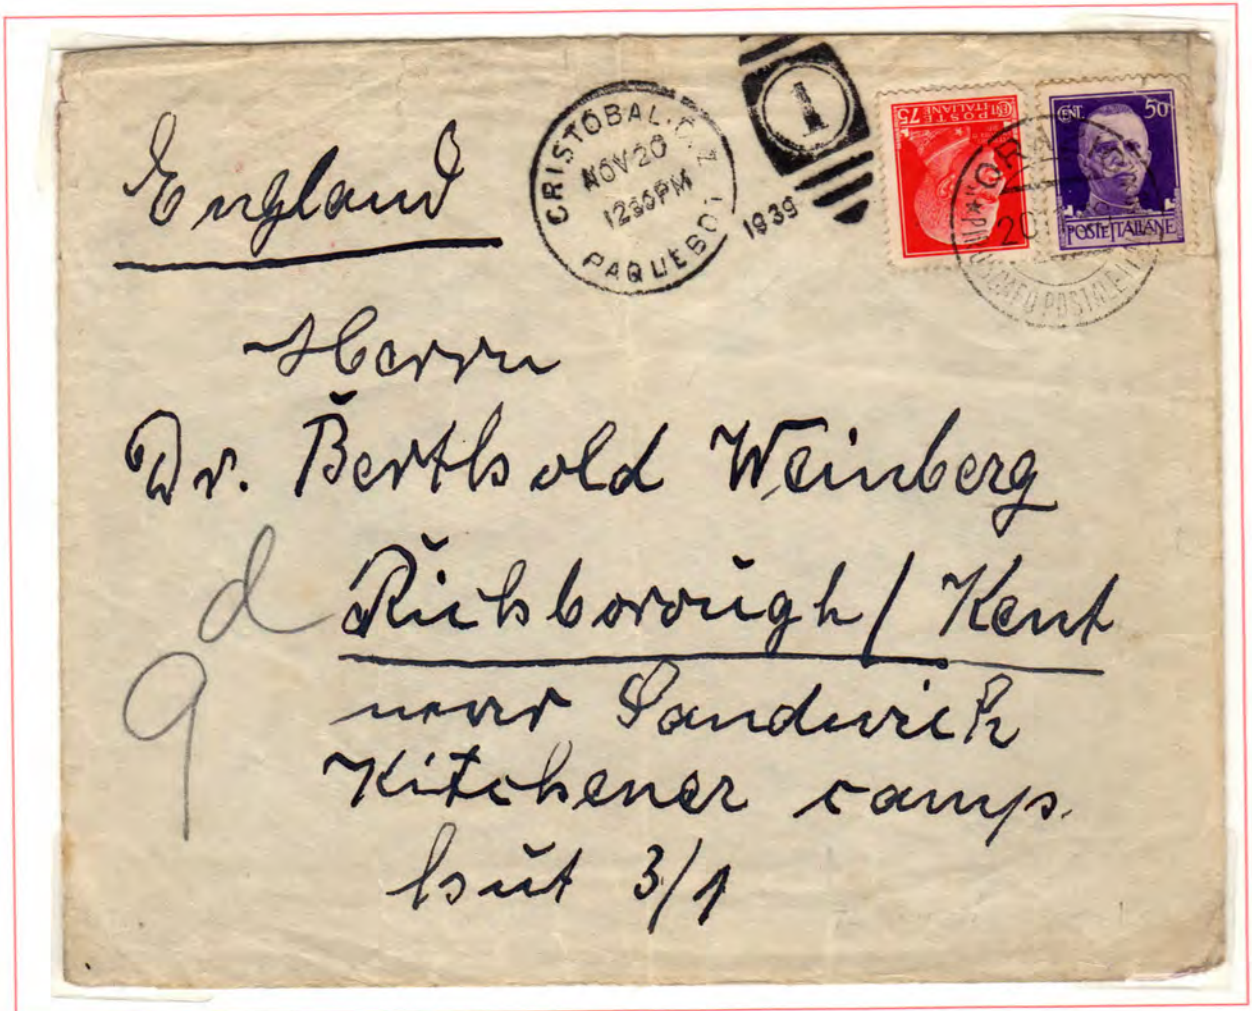 England
CRISTOBAL. C. Z.
NOV 20
12 30 PM
PAQUEBOT
1939
1
CENT 75
POSTE
ITALIANE
CENT. 50
POSTE ITALIANE
20
POSTALE
Herrn
Dr. Berthold Weinberg
d Richborough / Kent
9
near Sandwich
Kitchener camp.
hut 3/1